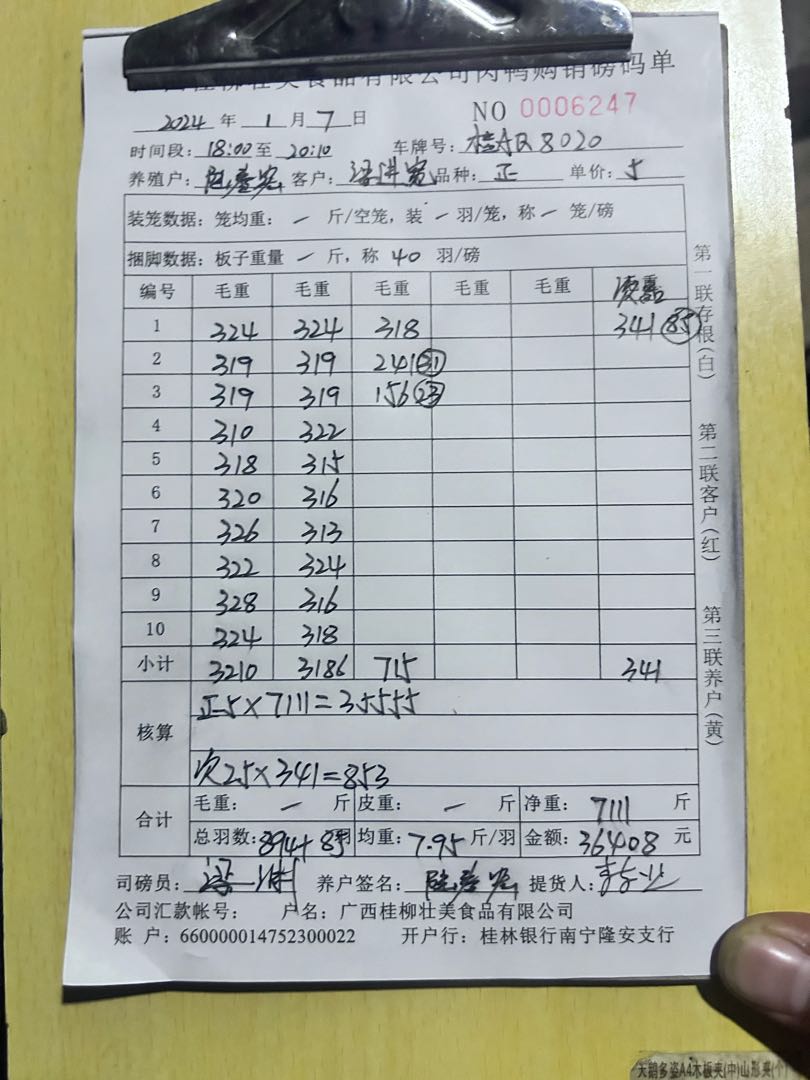 美食品有限公司肉鸭购销磅码单
2024 年 1 月 7 日 NO 0006247
时间段: 18:00 至 20:10 车牌号: 桂AR8020
养殖户: 客户: 品种: 正 单价: 5
装笼数据: 笼均重: 一 斤/空笼, 装 一 羽/笼, 称 一 笼/磅
捆脚数据: 板子重量 一 斤, 称 40 羽/磅
编号 毛重 毛重 毛重 毛重 毛重
1 324 324 318 341 (85)
2 319 319 241 (31)
3 319 319 156 (23)
4 310 322
5 318 315
6 320 316
7 326 313
8 322 324
9 328 316
10 324 318
小计 3210 3186 715 341
核算 正5×7111=35555
次2.5×341=853
合计 毛重: 一 斤 皮重: 一 斤 净重: 7111 斤
总羽数: 894+85羽 均重: 7.95 斤/羽 金额: 36408 元
司磅员: 养户签名: 提货人:
公司汇款帐号: 户名: 广西桂柳壮美食品有限公司
账 户: 660000014752300022 开户行: 桂林银行南宁隆安支行
第一联存根(白)
第二联客户(红)
第三联养户(黄)
天鹅多姿A4木板夹(中)山形夹(个)